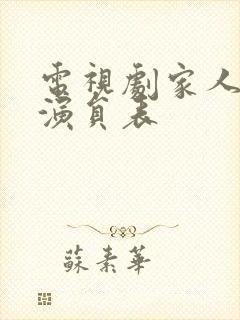 電視劇家人
演員表
蘇素華